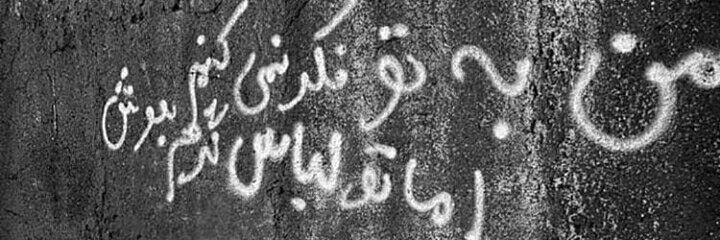 من به تو فکر نمی کنم
اما تو لباس گرم بپوش